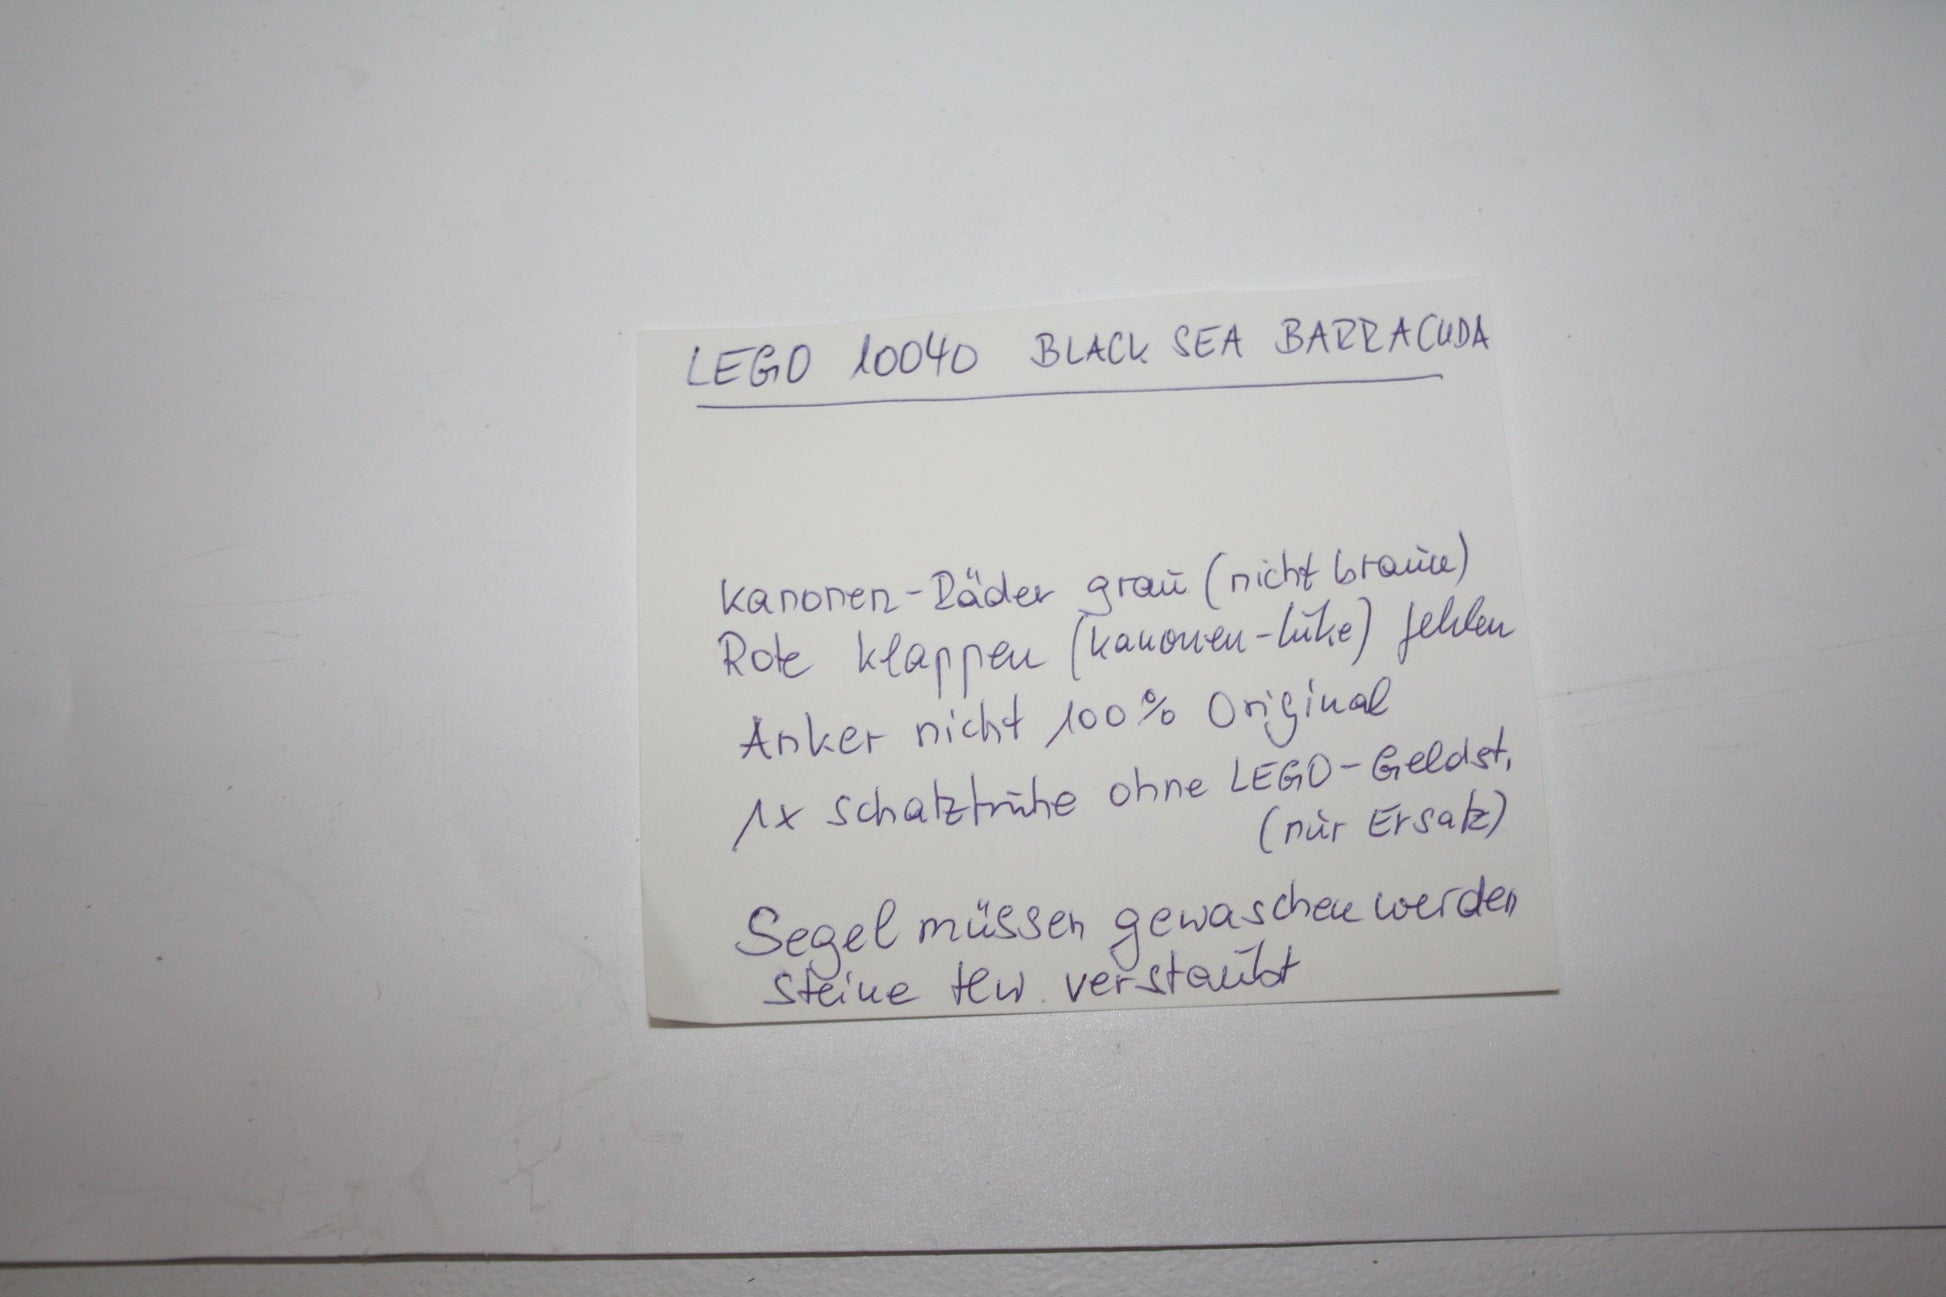 LEGO 10040 BLACK SEA BARRACUDA
Kanonen-Räder grau (nicht braun)
Rote Klappen (Kanonen-Luke) fehlen
Anker nicht 100% Original
1x Schatztruhe ohne LEGO-Geldst.
(nur Ersatz)
Segel müssen gewaschen werden
Steine tlw. verstaubt